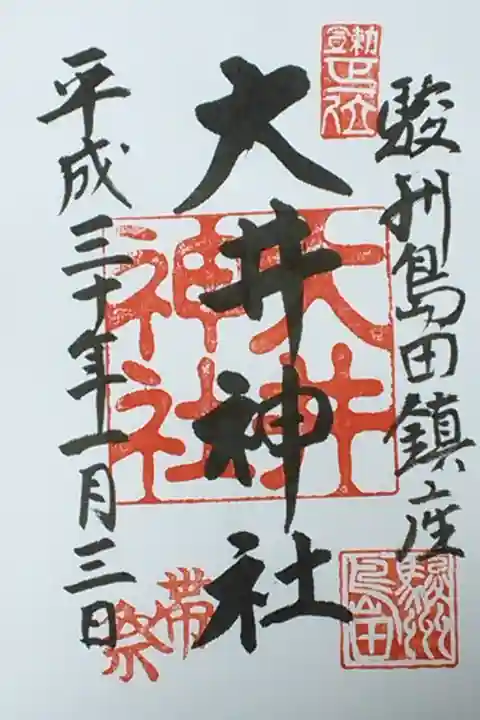 駿州島田鎮座
大井神社
平成三十年一月三日
大井神社
帯祭
駿州島田